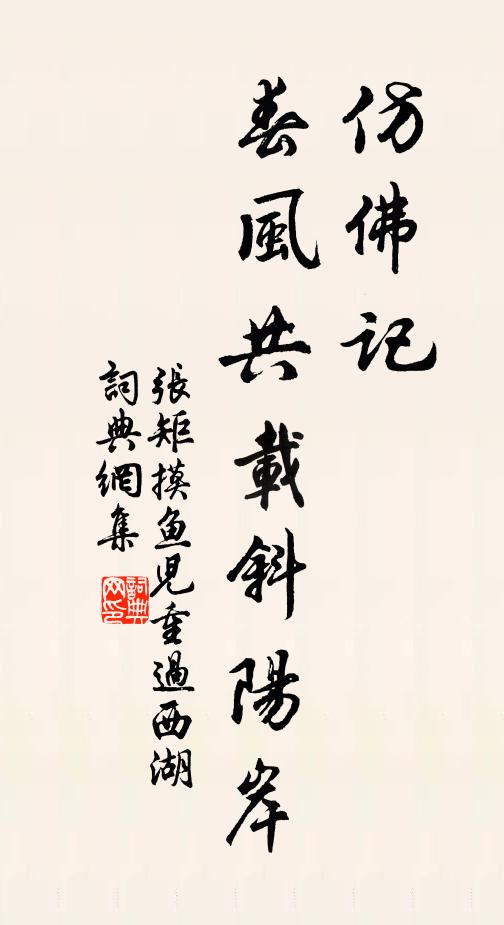 仿佛記
春風共載斜陽岸
張矩摸魚兒重過西湖
詞典網集
詞典网印